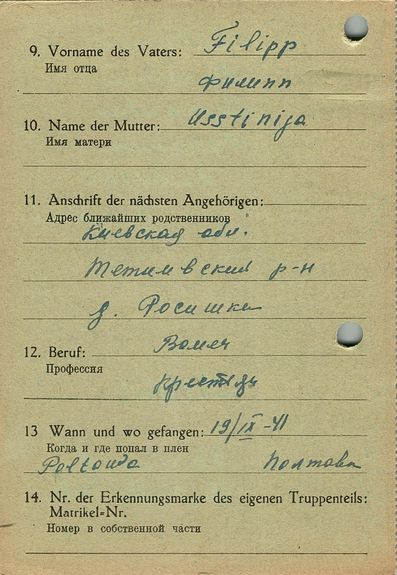 9. Vorname des Vaters: Filipp
Имя отца
Филипп
10. Name der Mutter: Usstinija
Имя матери
11. Anschrift der nächsten Angehörigen:
Адрес ближайших родственников
Киевская обл.
Тетиивский р-н
д. Росишки
12. Beruf:
Профессия
13 Wann und wo gefangen: 19/IX-41
Когда и где попал в плен
Poltawa Полтава
14. Nr. der Erkennungsmarke des eigenen Truppenteils:
Matrikel-Nr.
Номер в собственной части